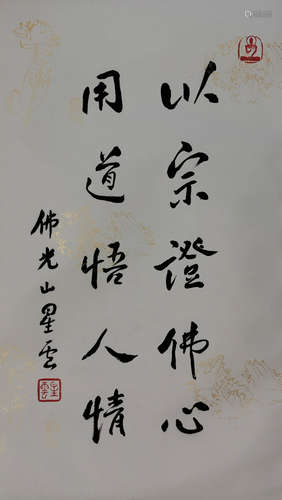 以宗證佛心
用道悟人情
佛光山星雲